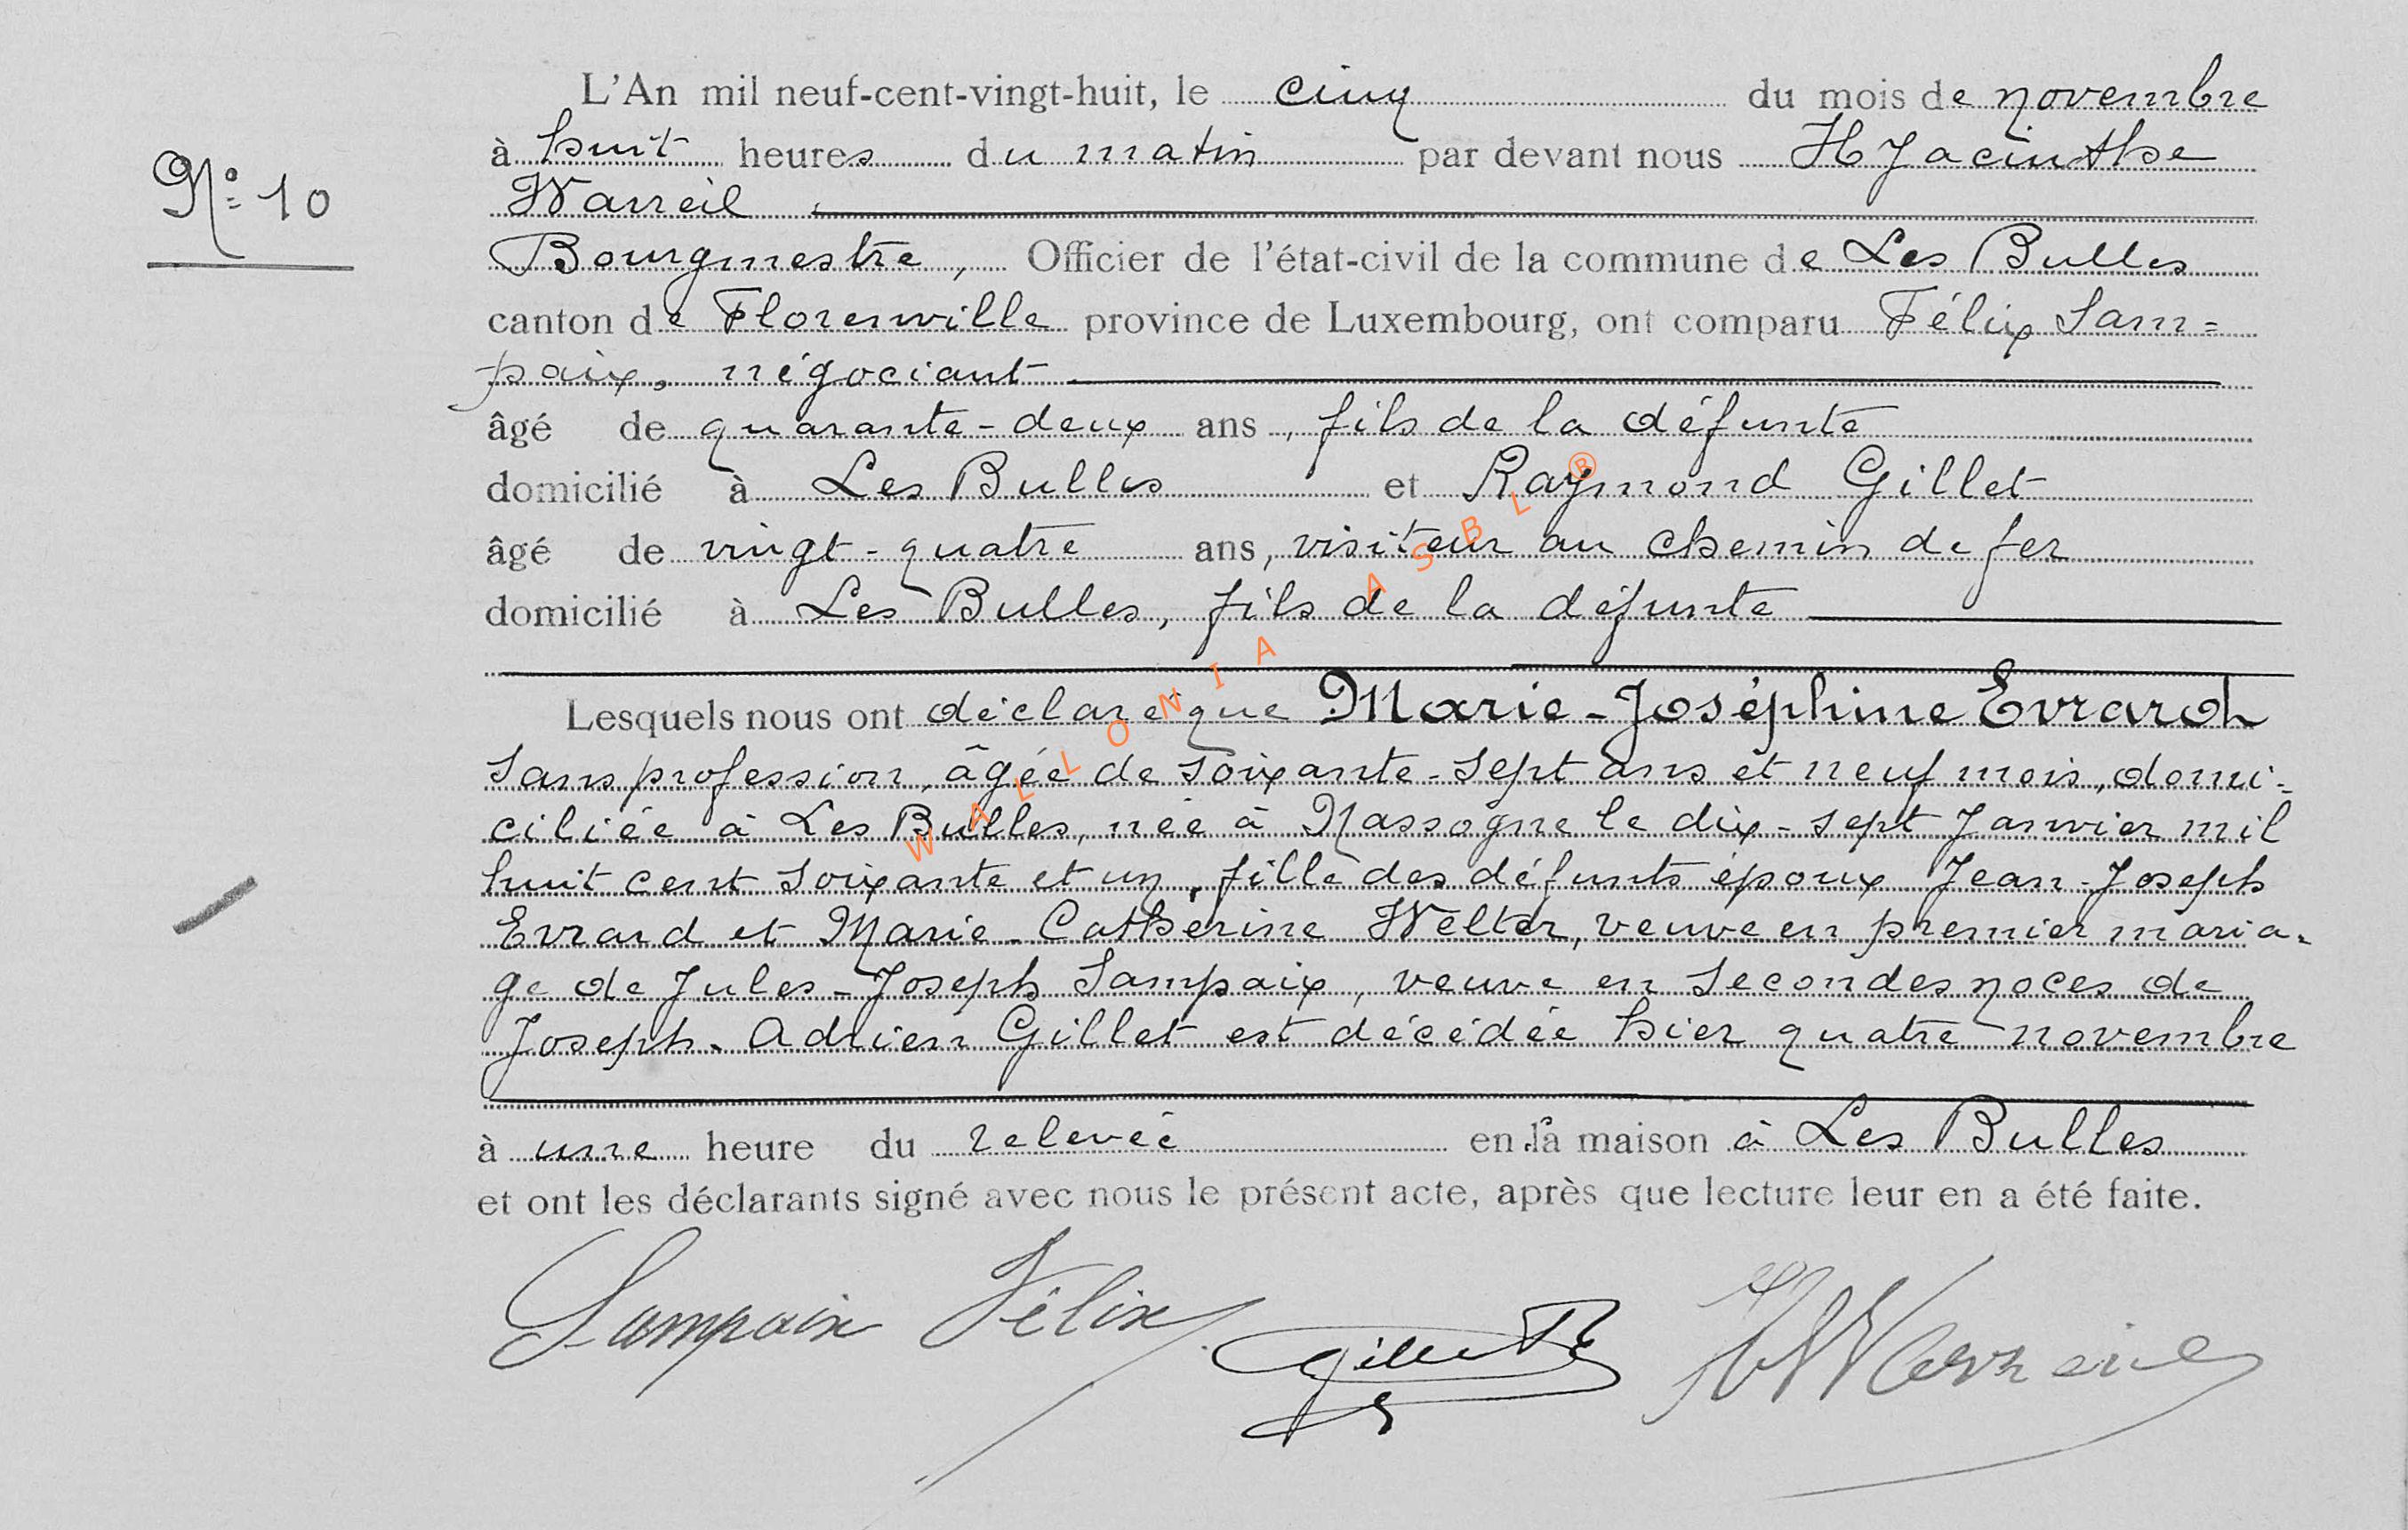 L'An mil neuf-cent-vingt-huit, le cinq du mois de novembre
à huit heures du matin par devant nous Hyacinthe
N° 10
Warzeil
Bourgmestre, Officier de l'état-civil de la commune de Les Bulles
canton de Florenville province de Luxembourg, ont comparu Félix Sam=
paix, négociant
âgé de quarante-deux ans, fils de la défunte
domicilié à Les Bulles et Raymond Gillet
âgé de vingt-quatre ans, visiteur au chemin de fer
domicilié à Les Bulles, fils de la défunte
Lesquels nous ont déclaré que Marie-Joséphine Evrard
sans profession, âgée de soixante-sept ans et neuf mois, domi-
ciliée à Les Bulles, née à Nassogne le dix-sept Janvier mil
huit cent soixante et un, fille des défunts époux Jean-Joseph
Evrard et Marie-Catherine Welter, veuve en premier maria-
ge de Jules-Joseph Sampaix, veuve en secondes noces de
Joseph-Adrien Gillet est décédée hier quatre novembre
à une heure du relevée en la maison à Les Bulles
et ont les déclarants signé avec nous le présent acte, après que lecture leur en a été faite.
Sampaix Félix Gillet R
WALLONIA ASBL ®